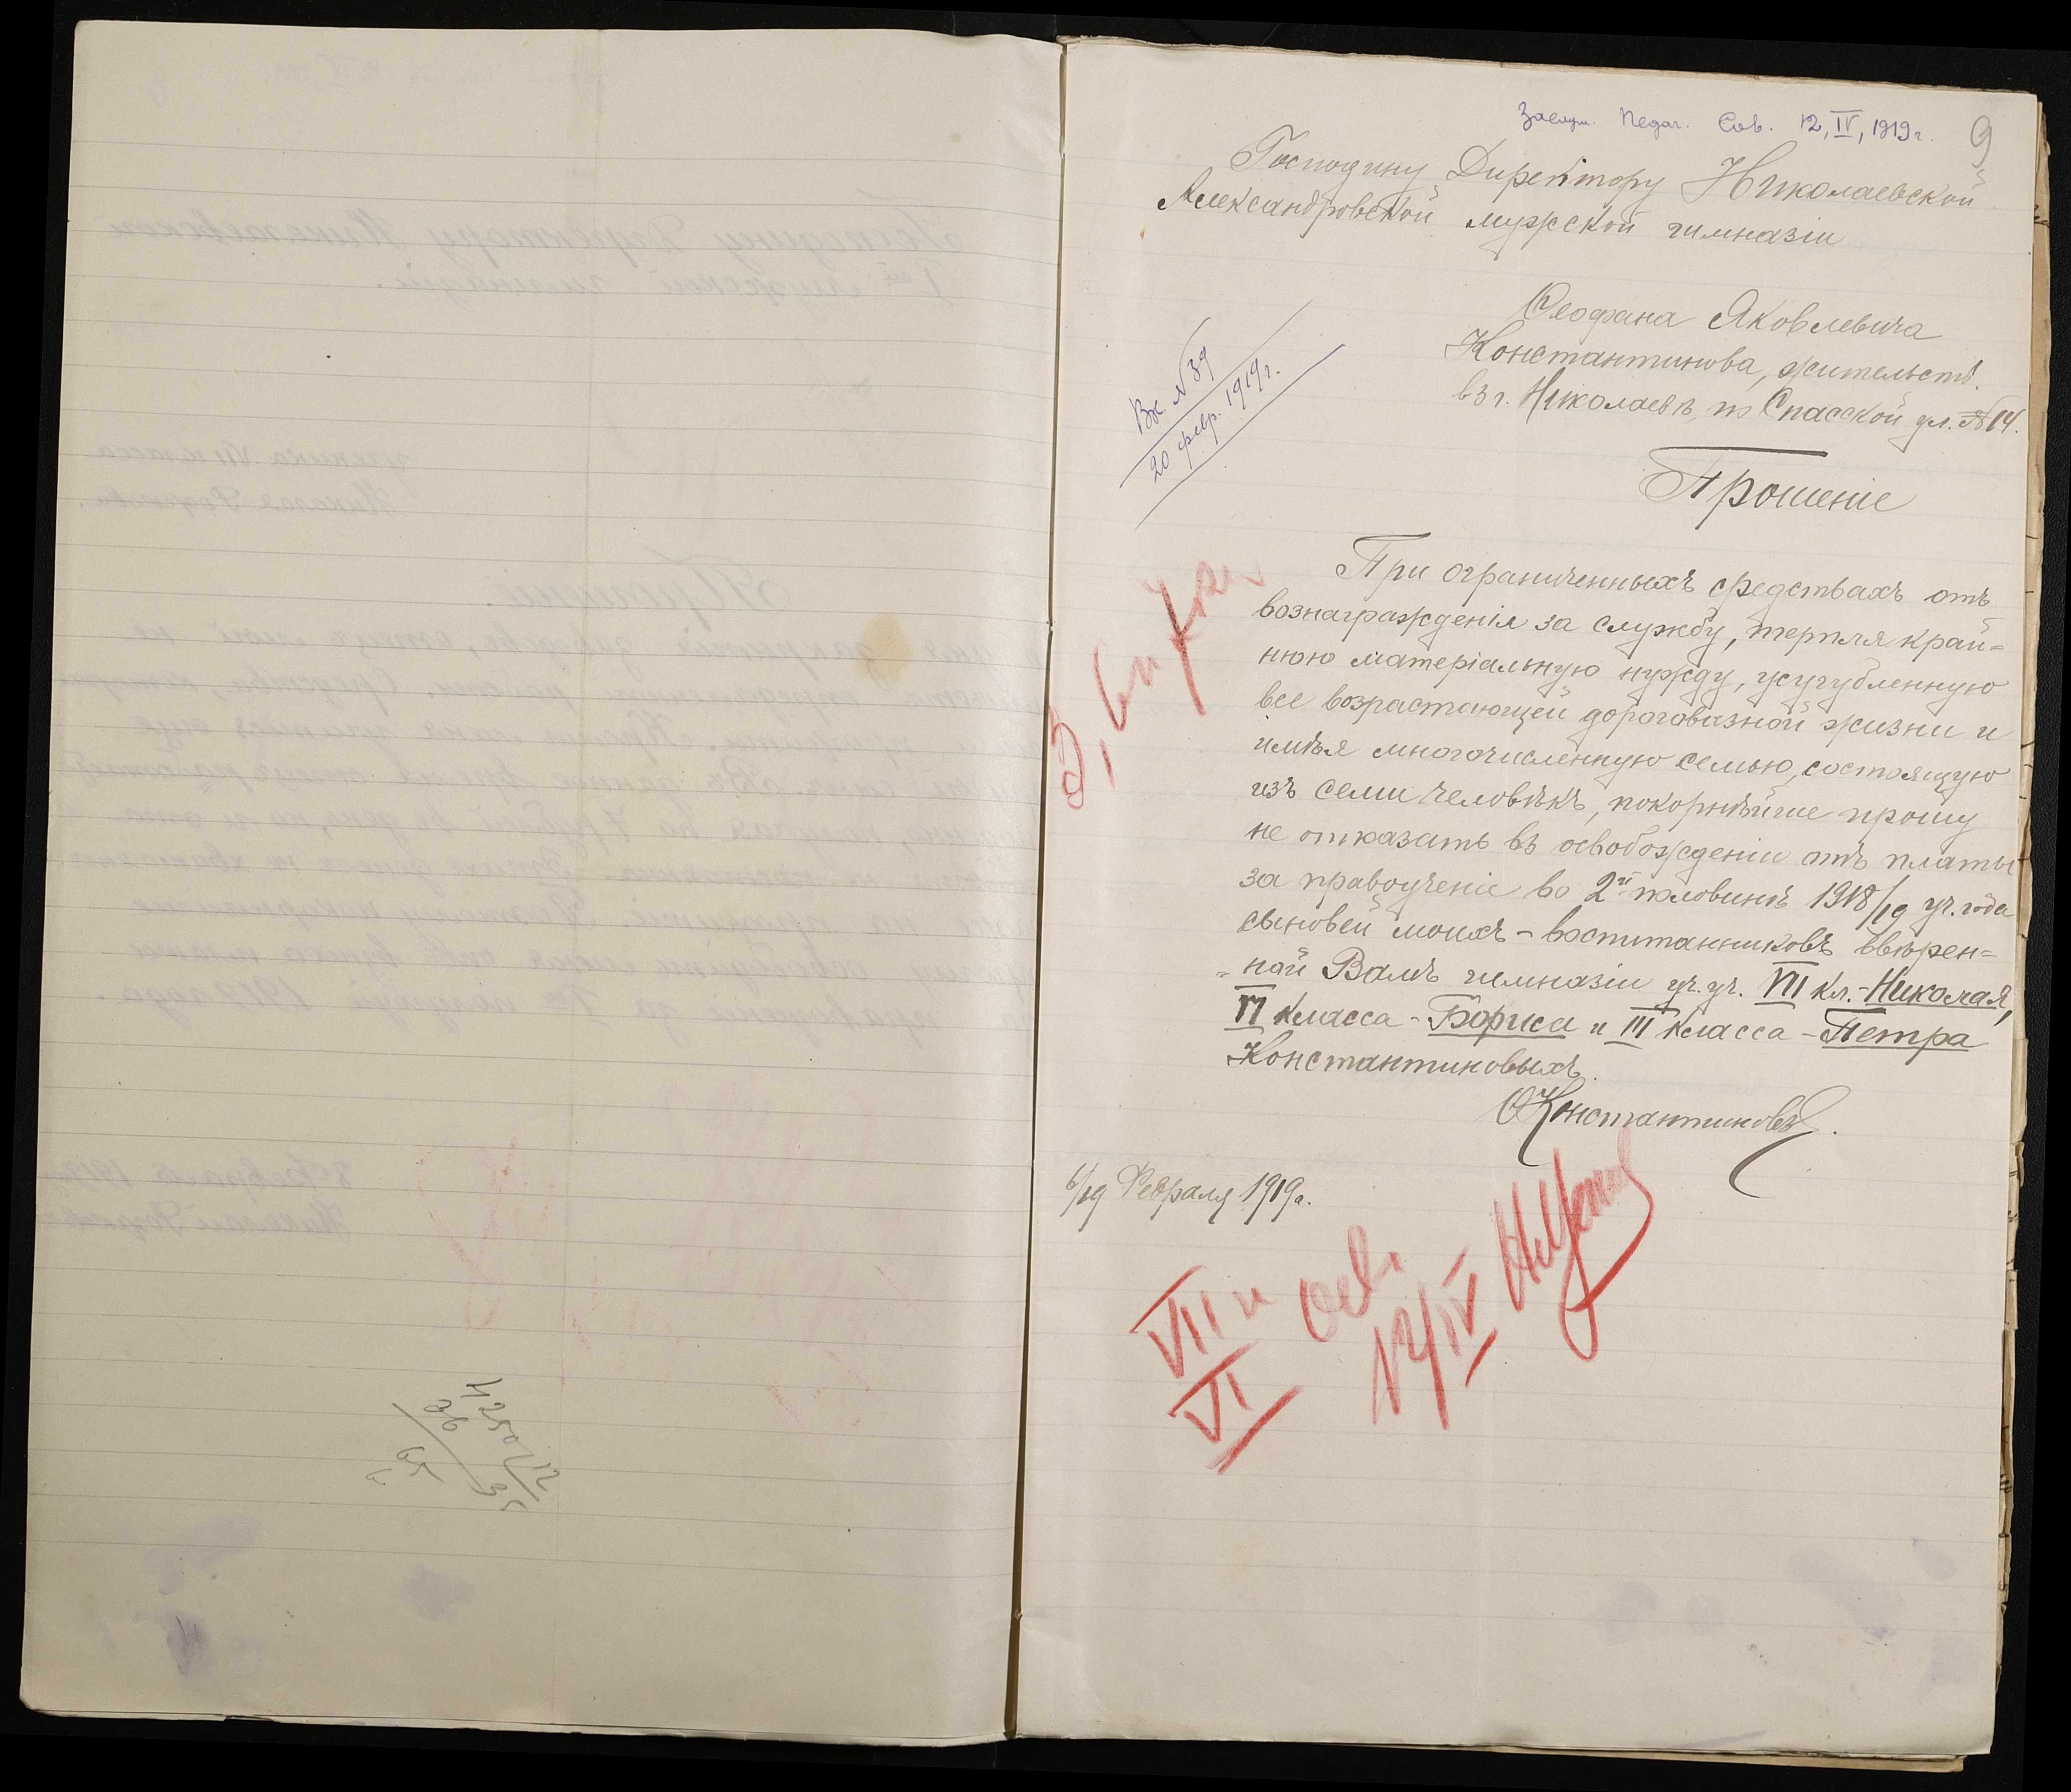 Заслуш. Педаг. Сов. 12, IV, 1919 г.
9
Господину Директору Николаевской
Александровской мужской гимназіи
Ѳеофана Яковлевича
Константинова, жительств.
въ г. Николаевѣ, по Спасской ул. №14.
Вх. №39
20 февр. 1919 г.
Прошеніе
При ограниченныхъ средствахъ отъ
вознагражденія за службу, терпя край=
нюю матеріальную нужду, усугубленную
все возрастающей дороговизной жизни и
имѣя многочисленную семью, состоящую
изъ семи человѣкъ, покорнѣйше прошу
не отказать въ освобожденіи отъ платы
за правоученіе во 2й половинѣ 1918/19 уч. года
сыновей моихъ - воспитанниковъ ввѣрен=
=ной Вамъ гимназіи уч. уч. VII кл. - Николая,
VI класса - Бориса и III класса - Петра
Константиновыхъ.
ѲКонстантиновъ.
6/19 Февраля 1919 г.
VII и осв.
VI
12/IV